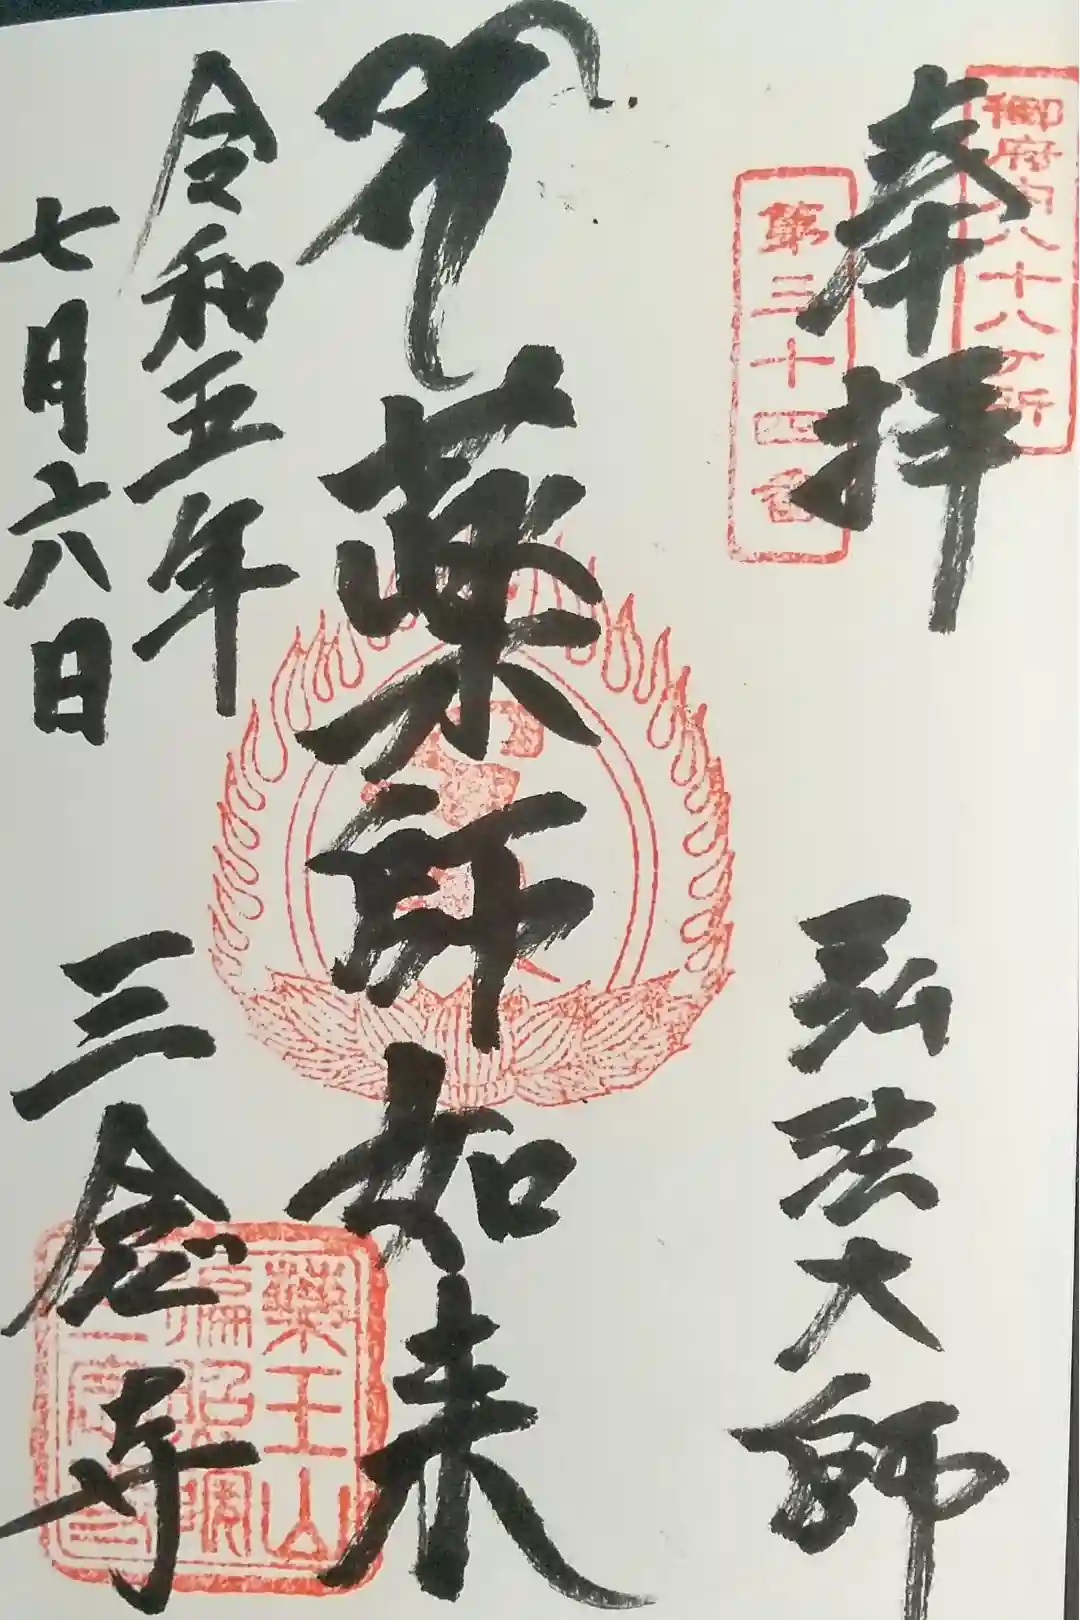 御府内八十八ケ所
奉拝
弘法大師
第三十四番
薬師如来
令和五年
七月六日
三念寺
薬王山